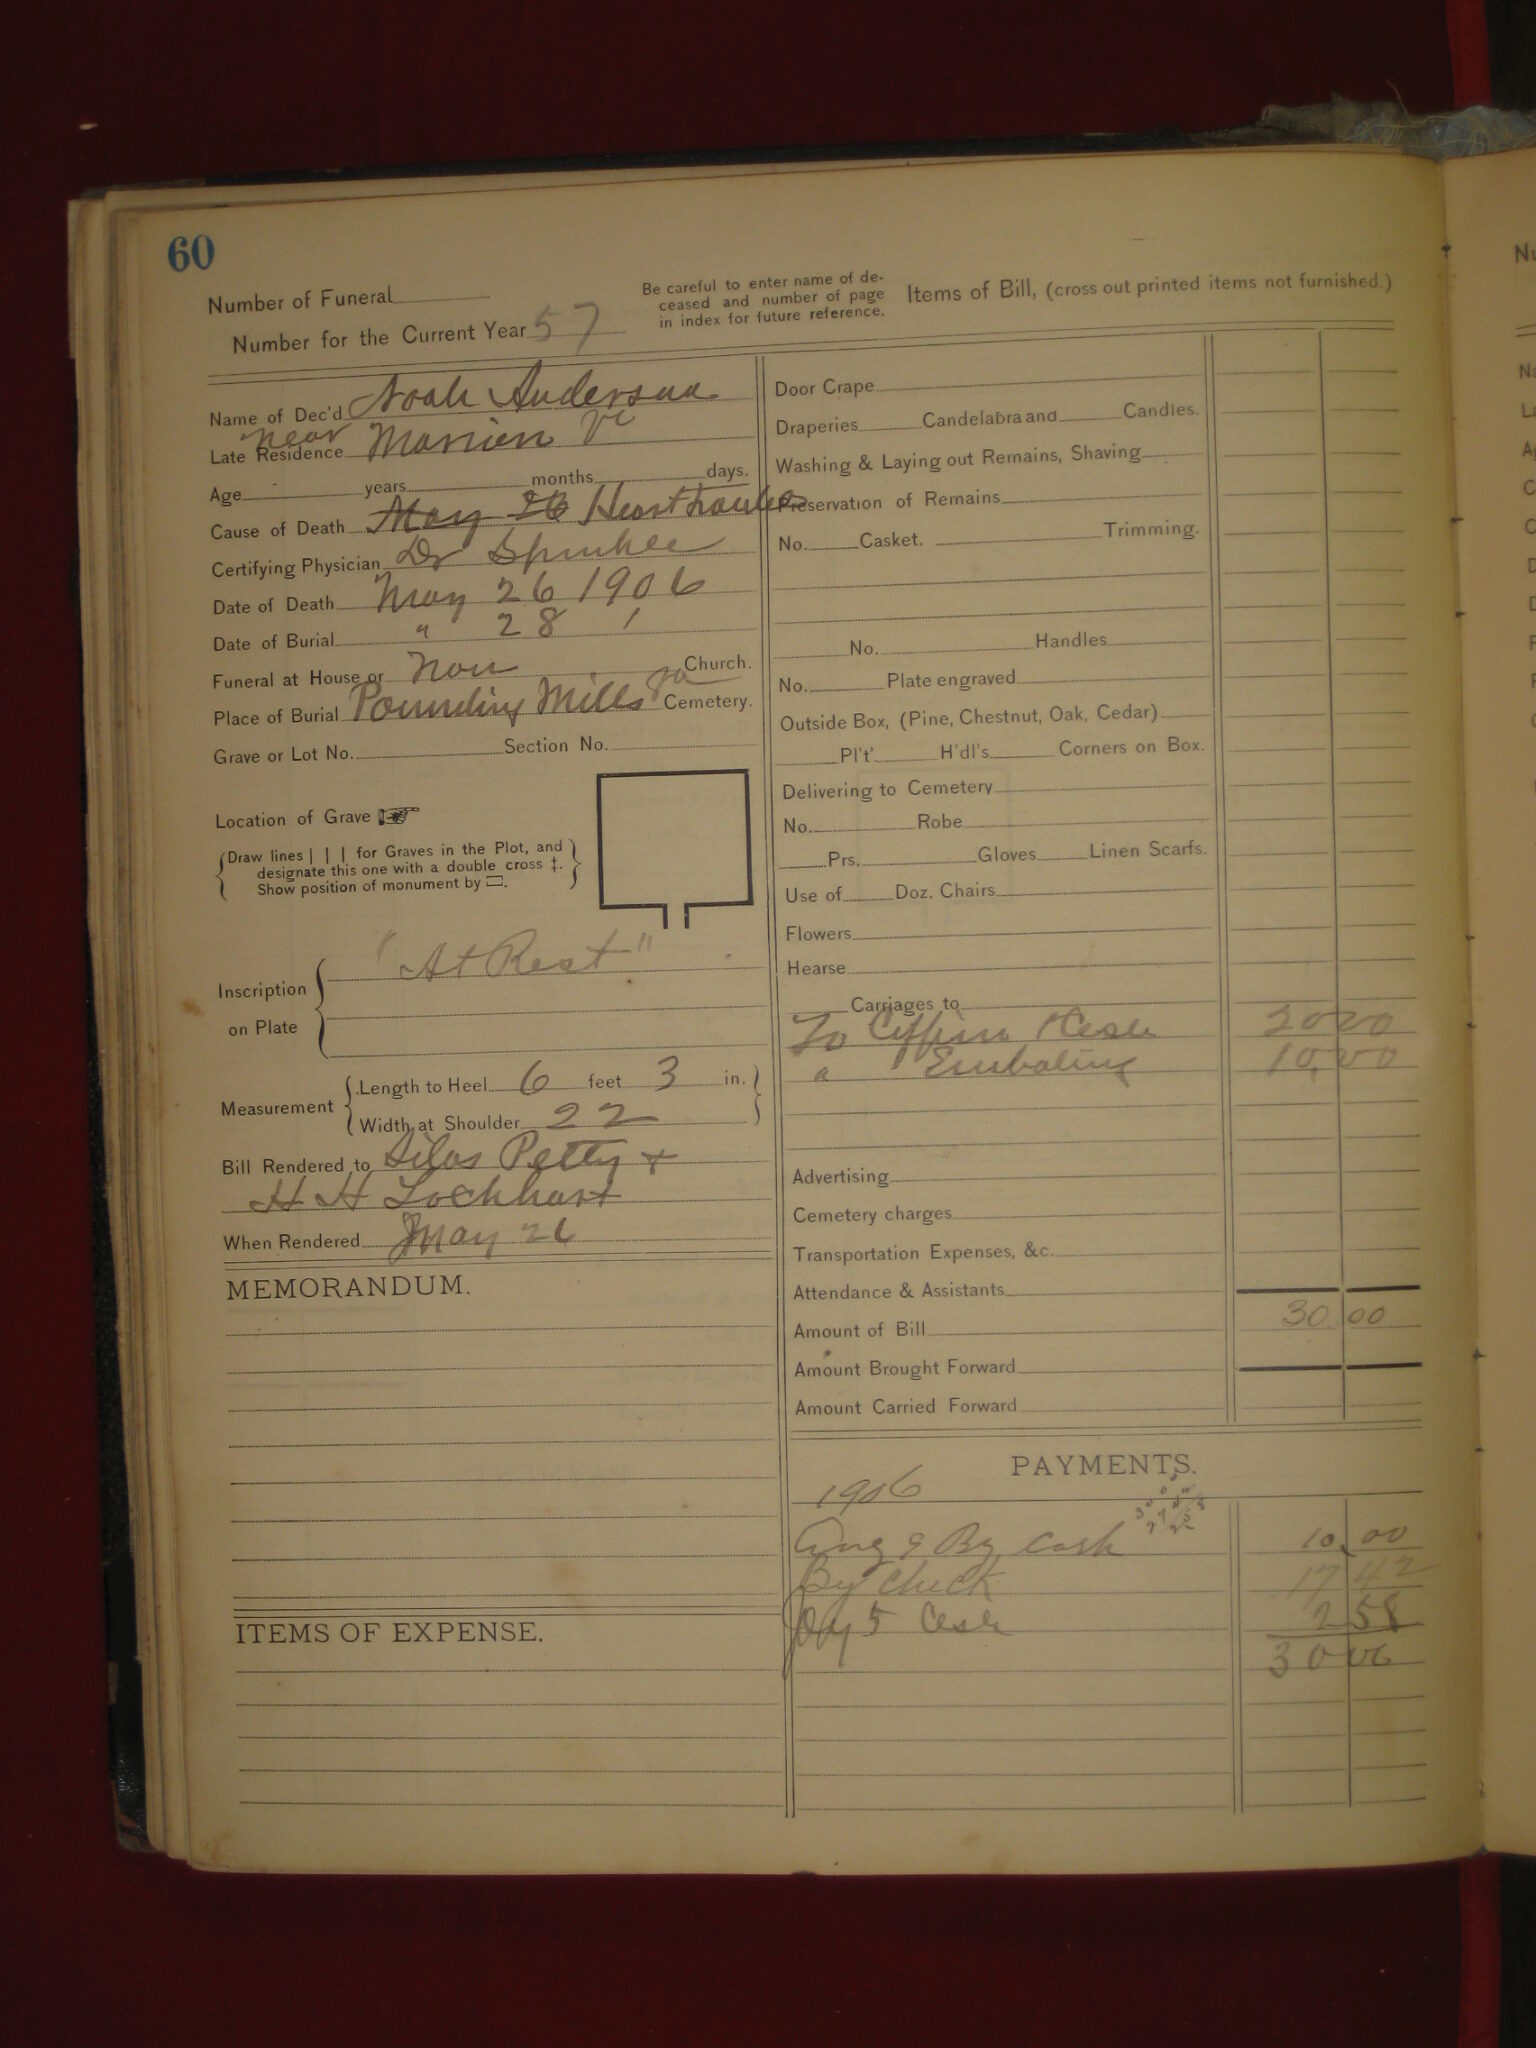 60
Number of Funeral
Number for the Current Year 57
Be careful to enter name of de-
ceased and number of page
in index for future reference.
Items of Bill, (cross out printed items not furnished.)
Name of Dec'd Noah Anderson
near
Late Residence Marrion Va
Age years months days.
Cause of Death May 26 Heart trouble
Certifying Physician Dr
Date of Death May 26 1906
Date of Burial " 28 /
Funeral at House or Non Church.
Place of Burial Pounding Mills Va Cemetery.
Grave or Lot No. Section No.
Location of Grave
Draw lines | | | for Graves in the Plot, and
designate this one with a double cross ‡.
Show position of monument by ▭.
Inscription
on Plate
"At Rest"
Measurement
Length to Heel 6 feet 3 in.
Width at Shoulder 22
Bill Rendered to Silas Petty +
H H Lockhart
When Rendered May 26
MEMORANDUM.
ITEMS OF EXPENSE.
Door Crape
Draperies Candelabra and Candles.
Washing & Laying out Remains, Shaving
Preservation of Remains
No. Casket. Trimming.
No. Handles
No. Plate engraved
Outside Box, (Pine, Chestnut, Oak, Cedar)
Pl't' H'dl's Corners on Box.
Delivering to Cemetery
No. Robe
Prs. Gloves Linen Scarfs.
Use of Doz. Chairs
Flowers
Hearse
Carriages to
To Coffin & Case 20 00
" Embaling 10,00
Advertising
Cemetery charges
Transportation Expenses, &c.
Attendance & Assistants
Amount of Bill 30.00
Amount Brought Forward
Amount Carried Forward
PAYMENTS.
1906
Aug 9 By Cash 10.00
By Check 17 42
5 Cash 2 58
30 00